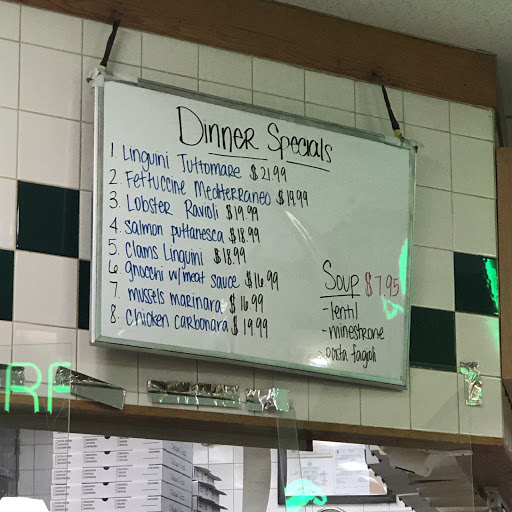 Dinner Specials
1 Linguini Tuttomare $21.99
2. Fettuccine Mediterraneo $19.99
3. Lobster Ravioli $19.99
4. Salmon puttanesca $18.99
5. Clams Linguini $18.99
6 gnocchi w/meat sauce $16.99
7. mussels marinara $16.99
8. chicken carbonara $19.99
Soup $7.95
-lentil
-minestrone
-pasta fagioli